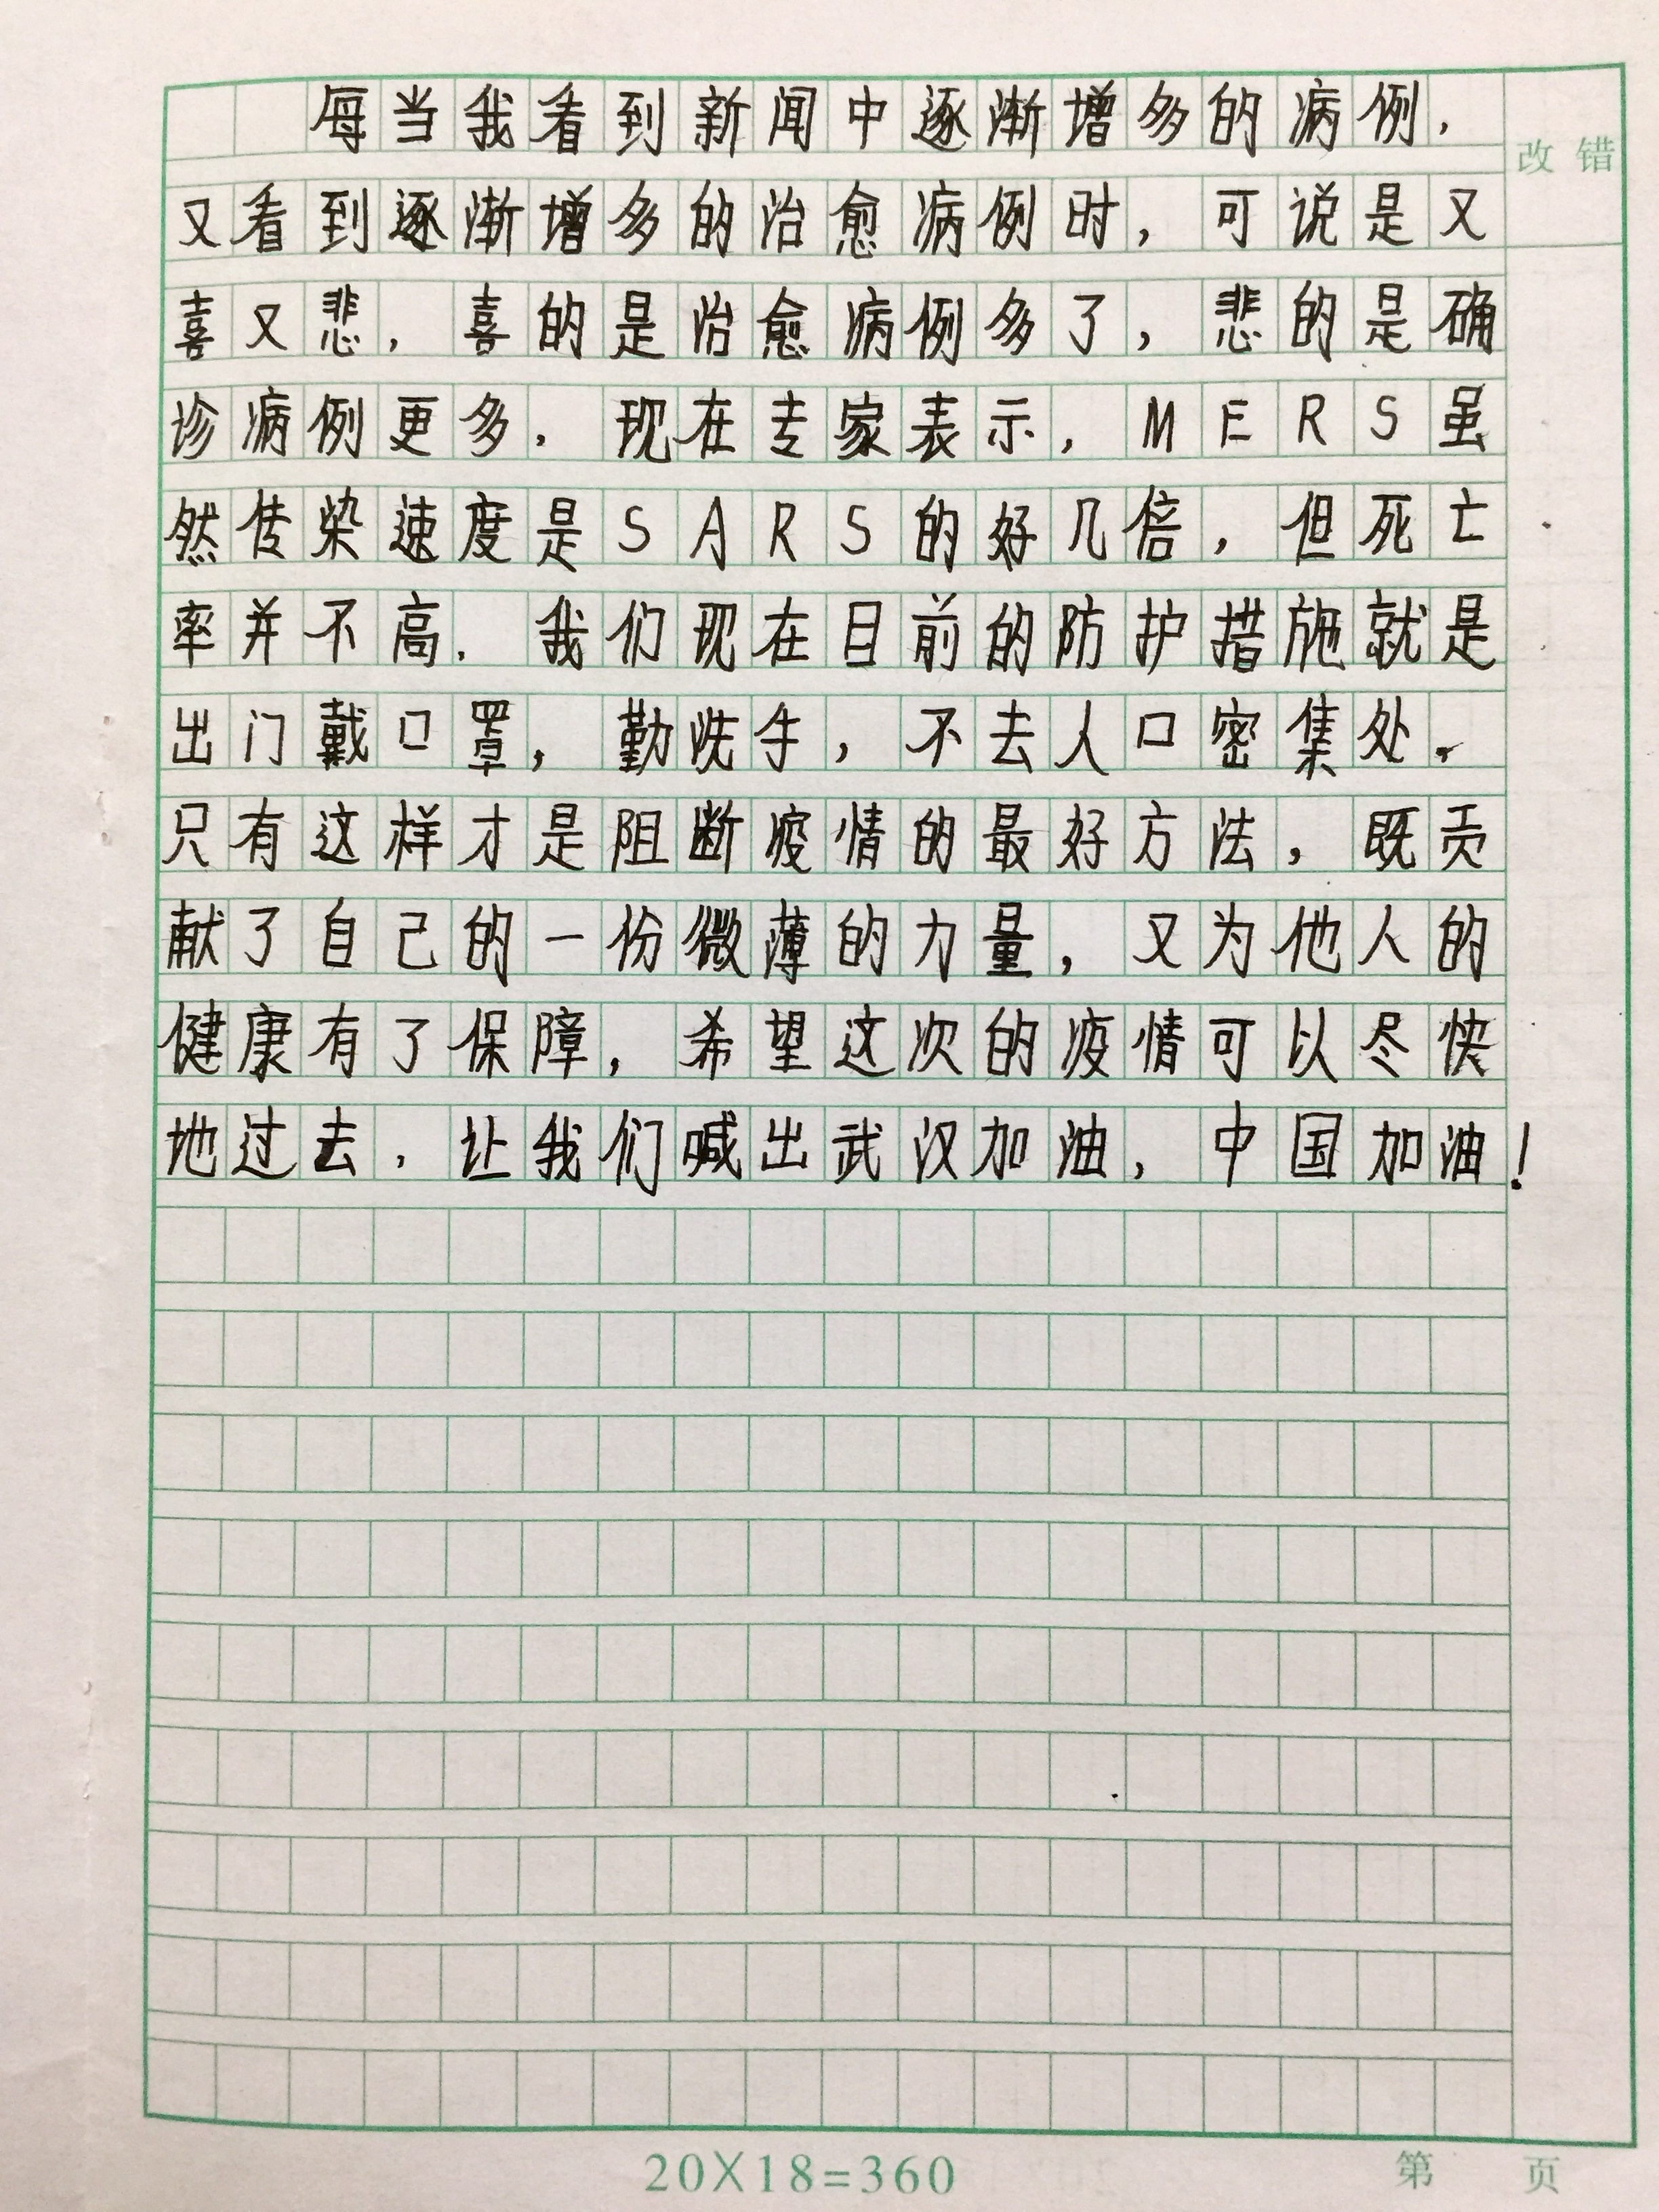 每当我看到新闻中逐渐增多的病例，
改错
又看到逐渐增多的治愈病例时，可说是又
喜又悲，喜的是治愈病例多了，悲的是确
诊病例更多．现在专家表示，MERS虽
然传染速度是SARS的好几倍，但死亡
率并不高．我们现在目前的防护措施就是
出门戴口罩，勤洗手，不去人口密集处．
只有这样才是阻断疫情的最好方法，既贡
献了自己的一份微薄的力量，又为他人的
健康有了保障，希望这次的疫情可以尽快
地过去，让我们喊出武汉加油，中国加油！
20X18=360
第 页